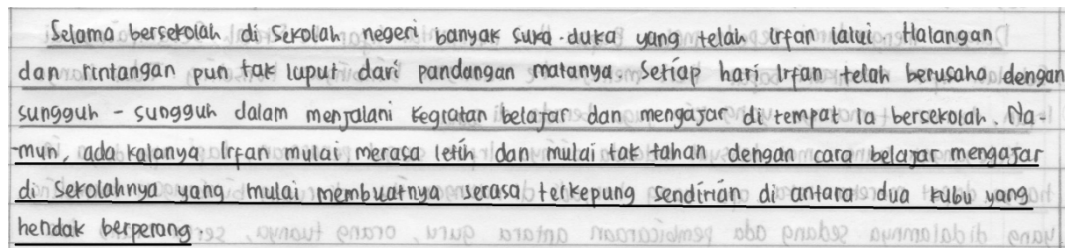 Selama bersekolah di sekolah negeri banyak suka-duka yang telah Irfan lalui. Halangan
dan rintangan pun tak luput dari pandangan matanya. Setiap hari Irfan telah berusaha dengan
sungguh - sungguh dalam menjalani kegiatan belajar dan mengajar di tempat ia bersekolah. Na-
-mun, ada kalanya Irfan mulai merasa letih dan mulai tak tahan dengan cara belajar mengajar
di sekolahnya yang mulai membuatnya serasa terkepung sendirian di antara dua kubu yang
hendak berperang.